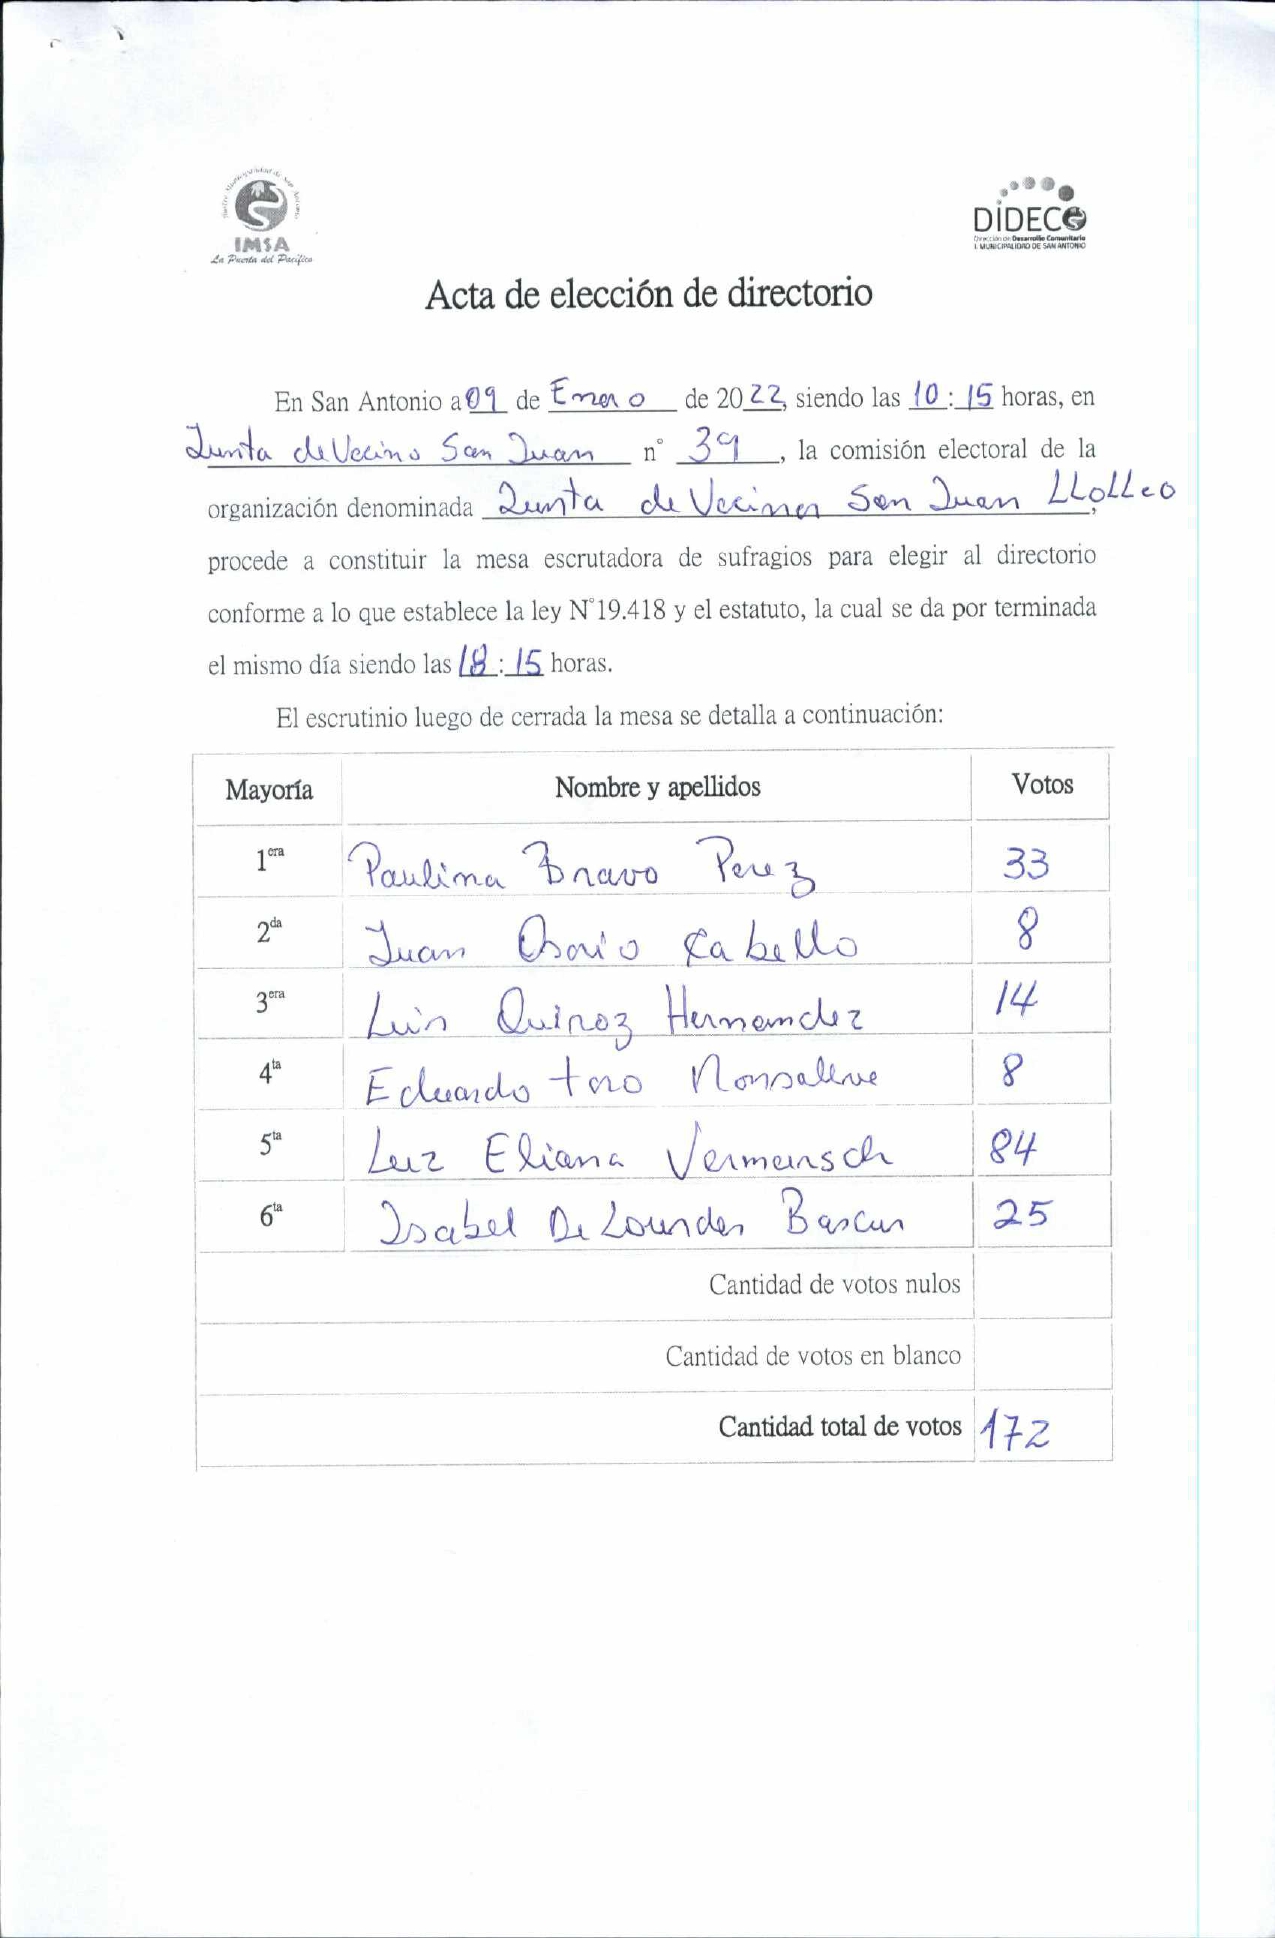 IMSA
La Puerta del Pacífico
DIDECO
Dirección de Desarrollo Comunitario
I. MUNICIPALIDAD DE SAN ANTONIO
Acta de elección de directorio
En San Antonio a 09 de Enero de 2022, siendo las 10:15 horas, en
Junta de Vecino San Juan n° 39, la comisión electoral de la
organización denominada Junta de Vecinos San Juan LLoLLeo,
procede a constituir la mesa escrutadora de sufragios para elegir al directorio
conforme a lo que establece la ley N°19.418 y el estatuto, la cual se da por terminada
el mismo día siendo las 18:15 horas.
El escrutinio luego de cerrada la mesa se detalla a continuación:
Mayoría Nombre y apellidos Votos
1era Paulina Bravo Perez 33
2da Juan Osorio Cabello 8
3era Luis Quiroz Hernandez 14
4ta Eduardo toro Monsalve 8
5ta Luz Eliana Vermeirsch 84
6ta Isabel De Lourdes Bascur 25
Cantidad de votos nulos
Cantidad de votos en blanco
Cantidad total de votos 172